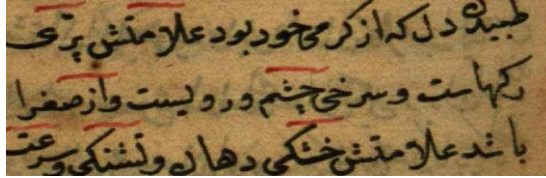 طبیدن دل که از کرمی خود بود علامتش پری
رکهاست و سرخی چشم و رویست و از صفرا
باشد علامتش خشکی دهان و تشنکی و سرعت